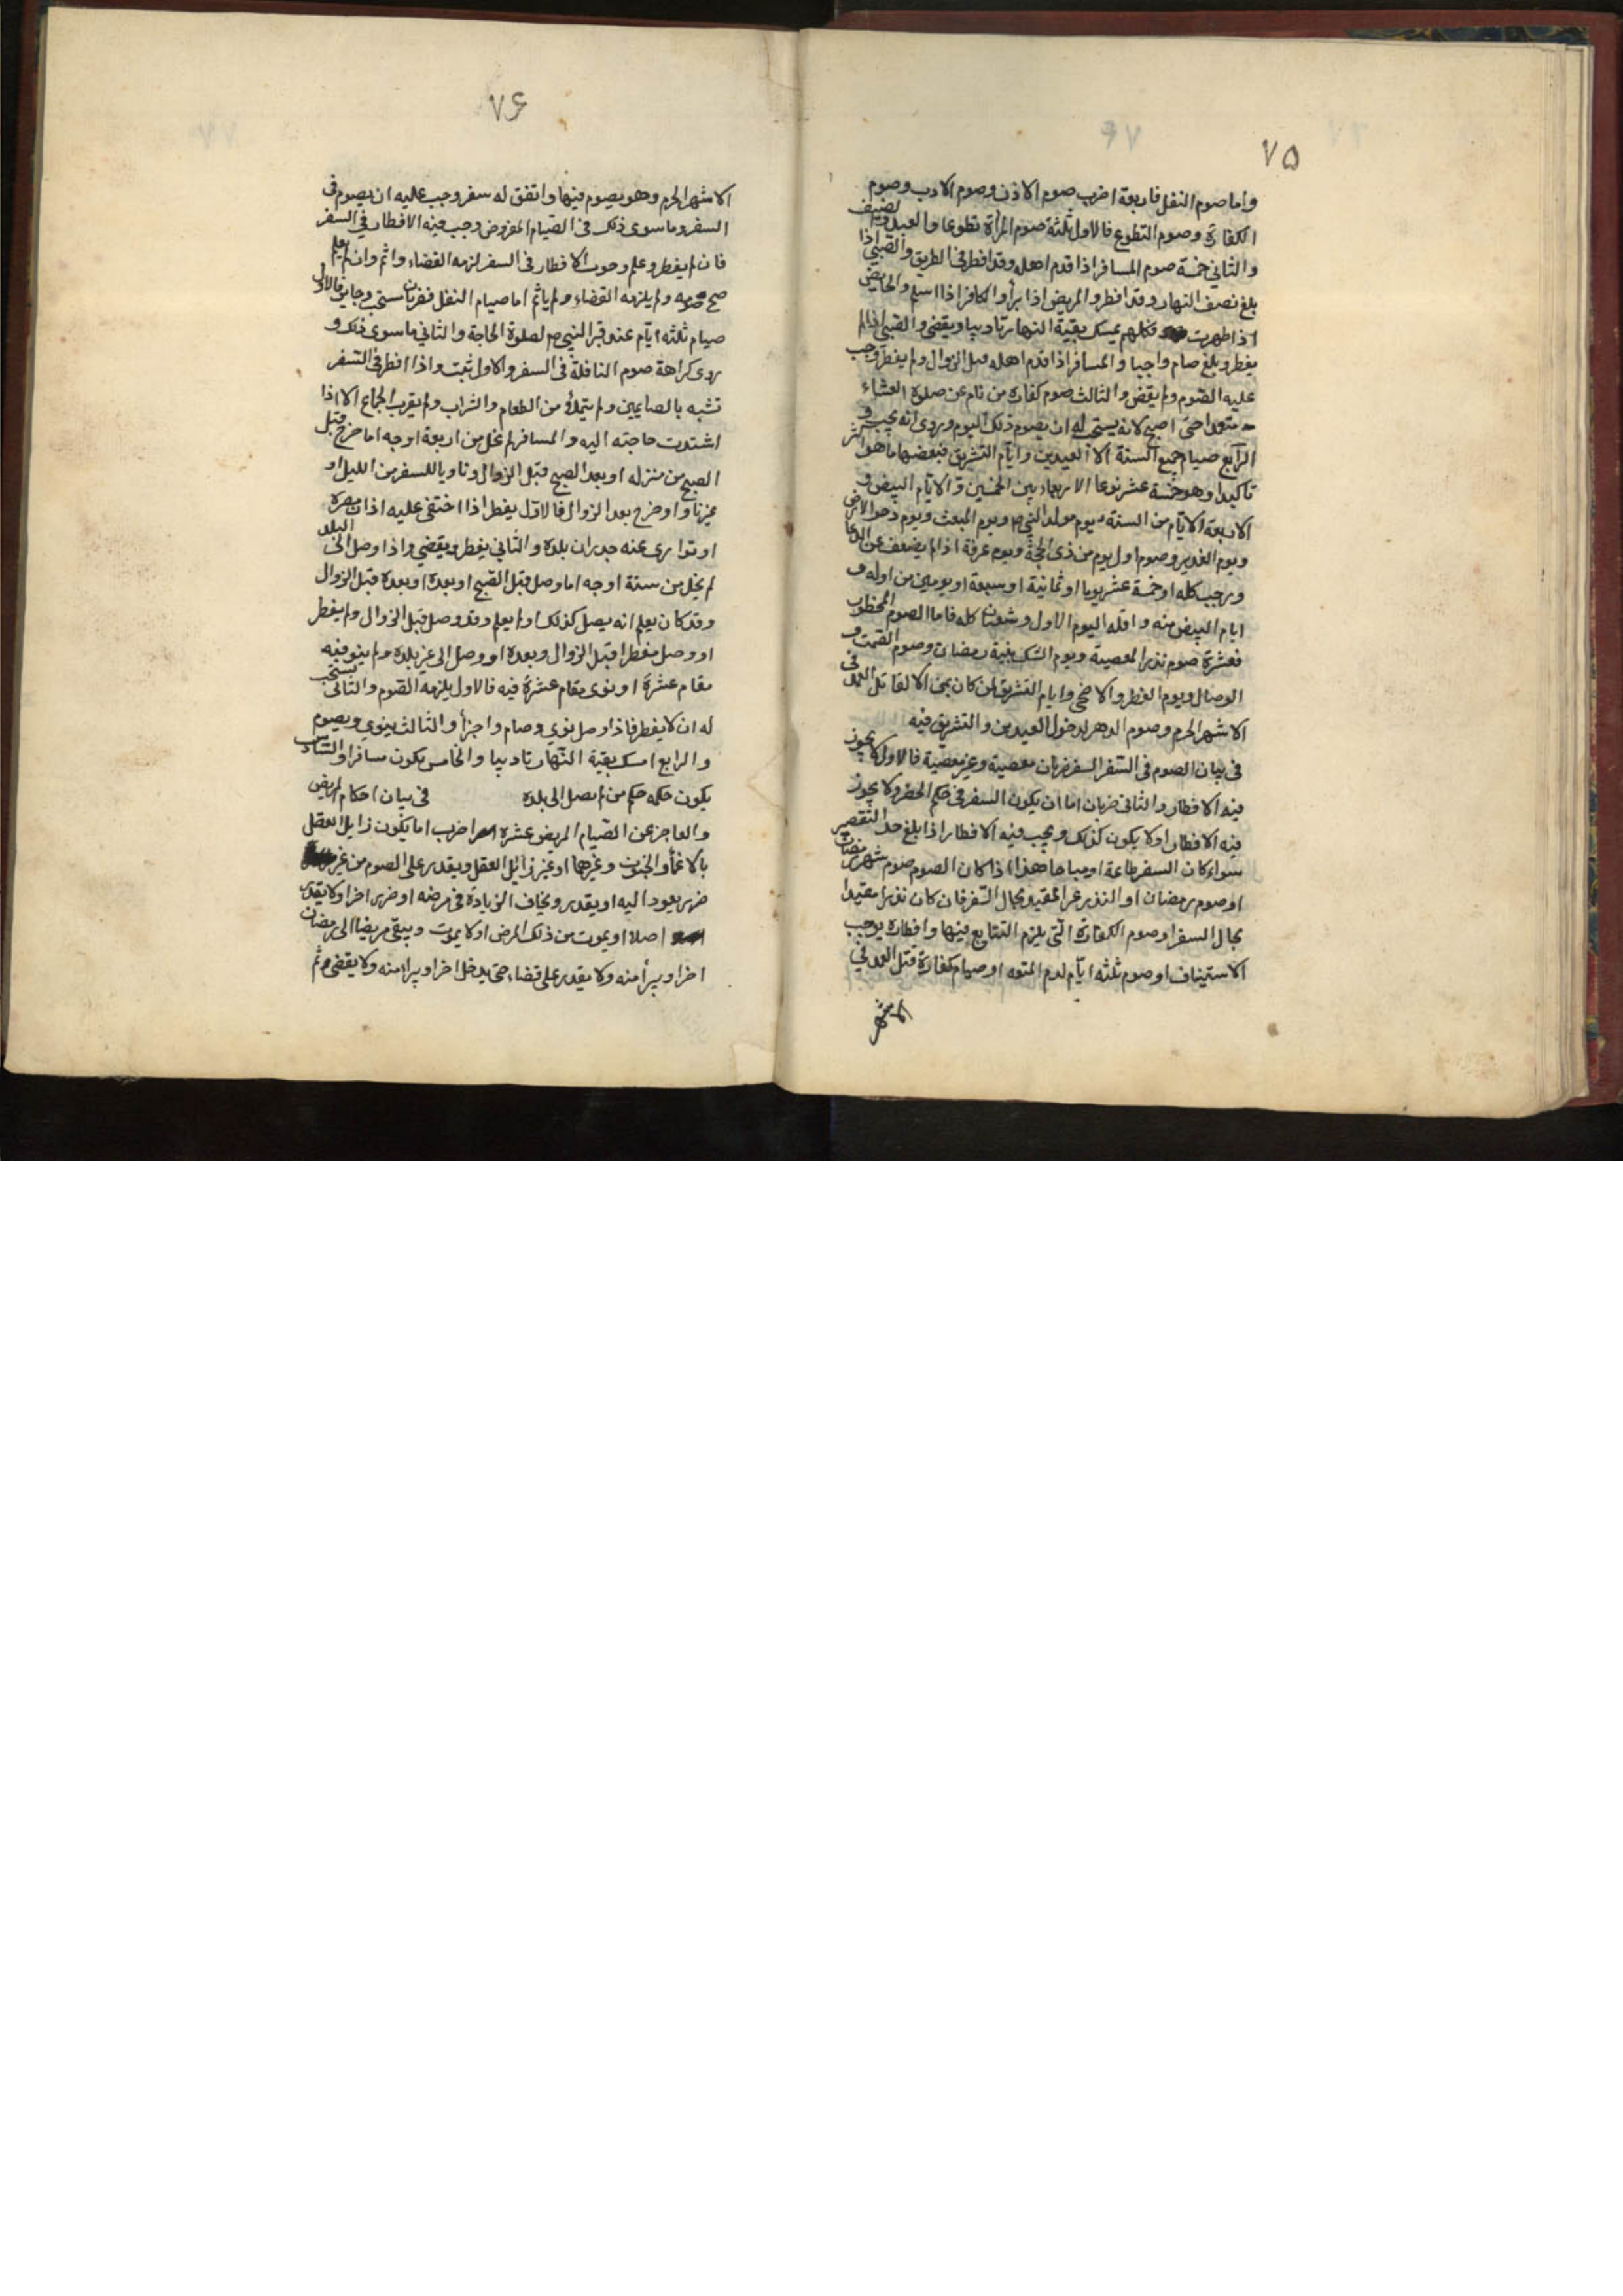 ٧۵
واما صوم النفل فاربعة اضرب صوم الاذن وصوم الادب وصوم
الكفارة وصوم التطوع فالاول ثلثة صوم المرأة تطوعا والعبد والضيف
والثاني خمسة صوم المسافر اذا قدم اهله وقد افطر في الطريق والصبي اذا
بلغ نصف النهار وقد افطر والمريض اذا برأ والكافر اذا اسلم والحايض
اذا طهرت فكلهم يمسك بقية النهار تاديبا ويقضى والصبي اذا لم
يفطر وبلغ صام واجبا والمسافر اذا قدم اهله قبل الزوال ولم يفطر وجب
عليه الصوم ولم يقض والثالث صوم كفارة من نام عن صلوة العشاء
متعمدا حتى اصبح لانه يستحب له ان يصوم ذلك اليوم وروى انه يجب و
الرابع صيام جميع السنة الا العيدين وايام التشريق فبعضها ما هو اشر
تاكيدا وهو خمسة عشر نوعا الاربعاء بين الخمسين والايام البيض و
الاربعة الايام من السنة يوم مولد النبي ص ويوم المبعث ويوم دحو الارض
ويوم الغدير وصوم اول يوم من ذى الحجة ويوم عرفة اذا لم يضعف عن الدعا
ورجب كله او خمسة عشر يوما او ثمانية او سبعة او يومين من اوله و
ايام البيض منه واقله اليوم الاول وشعبان كله فاما الصوم المحظور
فعشرة صوم نذر المعصية ويوم الشك بنية رمضان وصوم الصمت و
الوصال ويوم الفطر والاضحى وايام التشريق لمن كان بمنى الا لقاتل العمد في
الاشهر الحرم وصوم الدهر لدخول العيدين والتشريق فيه
في بيان الصوم في السفر السفر ضربان معصية وغير معصية فالاول لا يجوز
فيه الافطار والثانى ضربان اما ان يكون السفر في حكم الحضر ولا يجوز
فيه الافطار او لا يكون كذلك ويجب فيه الافطار اذا بلغ حد التقصير
سواء كان السفر طاعة او مباحا هذا اذا كان الصوم صوم شهر رمضان
او صوم رمضان او النذر غير المقيد بحال السفر فان كان نذرا مقيدا
بحال السفر او صوم الكفارة التى يلزم التتابع فيها وافطاره يوجب
الاستيناف او صوم ثلثه ايام لدم المتعه او صيام كفارة قتل العمد في
الاشهر
٧۶
الاشهر الحرم وهو يصوم فيها واتفق له سفر وجب عليه ان يصوم في
السفر وما سوى ذلك فى الصيام المفروض وجب فيه الافطار في السفر
فان لم يفطر وعلم وجوب الافطار فى السفر لزمه القضاء واثم وان لم يعلم
صح صومه ولم يلزمه القضاء ولم ياثم اما صيام النفل فضربان مستحب وجايز فالاول
صيام ثلثه ايام عند قبر النبي ص لصلوة الحاجة والثاني ما سوى ذلك و
روى كراهة صوم النافلة فى السفر والاول اثبت واذا افطر فى السفر
تشبه بالصايمين ولم يتملأ من الطعام والشراب ولم يقرب الجماع الا اذا
اشتدت حاجته اليه والمسافر لم يخل من اربعة اوجه اما خرج قبل
الصبح من منزله او بعد الصبح قبل الزوال وناويا للسفر من الليل او
غير ناو او خرج بعد الزوال فالاول يفطر اذا اختفى عليه اذان مصره
او توارى عنه جدران بلده والثانى يفطر ويقضي واذا وصل الى البلد
لم يخل من ستة اوجه اما وصل قبل الصبح او بعده او بعده قبل الزوال
وقد كان يعلم انه يصل كذلك او لم يعلم وقد وصل قبل الزوال ولم يفطر
او وصل مفطرا قبل الزوال وبعده او وصل الى غير بلده ولم ينو فيه
مقام عشرة او نوى مقام عشرة فيه فالاول يلزمه الصوم والثانى يستحب
له ان لا يفطر فاذا وصل نوي وصام واجزأ والثالث ينوي ويصوم
والرابع امسك بقية النهار تاديبا والخامس يكون مسافرا والسادس
يكون حكمه حكم من لم يصل الى بلده في بيان احكام المريض
والعاجز عن الصيام المريض عشرة اضرب اما يكون زايل العقل
بالاغماء والجنون وغيرهما او غير زائل العقل ويقدر على الصوم من غير
ضرر يعود اليه او يقدر ويخاف الزيادة فى مرضه او ضررا اخر او لا يقدر
اصلا او يموت من ذلك المرض او لا يموت ويبقى مريضا الى رمضان
اخر او يبرأ منه ولا يقدر على قضاء حتى يدخل اخر او يبرأ منه ولا يقضى ثم